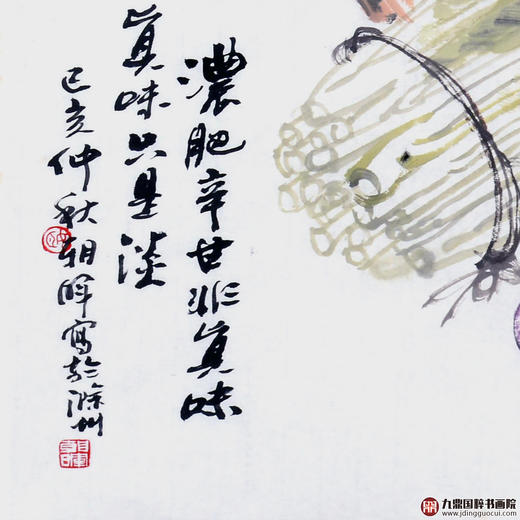 濃肥辛甘非真味
真味只是淡
己亥仲秋朝晖寫於滁州
九鼎国粹书画院
www.jdingguocui.com